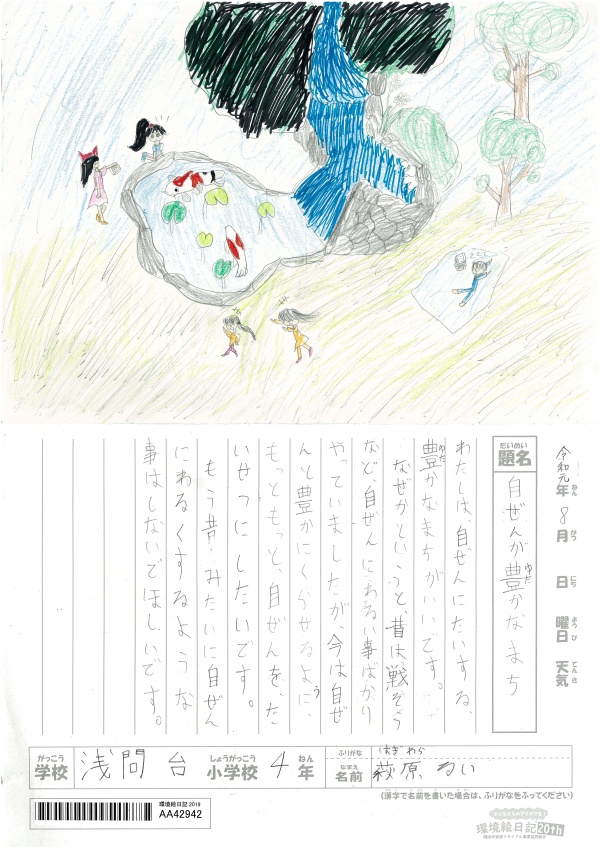 令和元年 8月 日 曜日 天気
ねん がつ にち ようび てんき
だいめい
題名
自ぜんが豊かなまち
ゆた
わたしは、自ぜんにたいする、
豊かなまちがいいです。
ゆた
なぜかというと、昔は、戦そう
など、自ぜんにわるい事ばかり
やっていましたが、今は自ぜ
んと豊かにくらせるように、
もっともっと、自ぜんを、た
いせつにしたいです。
もう昔みたいに自ぜん
にわるくするような
事はしないでほしいです。
がっこう
学校
浅間台
しょうがっこう
小学校
4
ねん
年
ふりがな
はぎ わら
なまえ
名前
萩原 るい
(漢字で名前を書いた場合は、ふりがなをふってください)
環境絵日記 2019
AA42942
環境絵日記20th